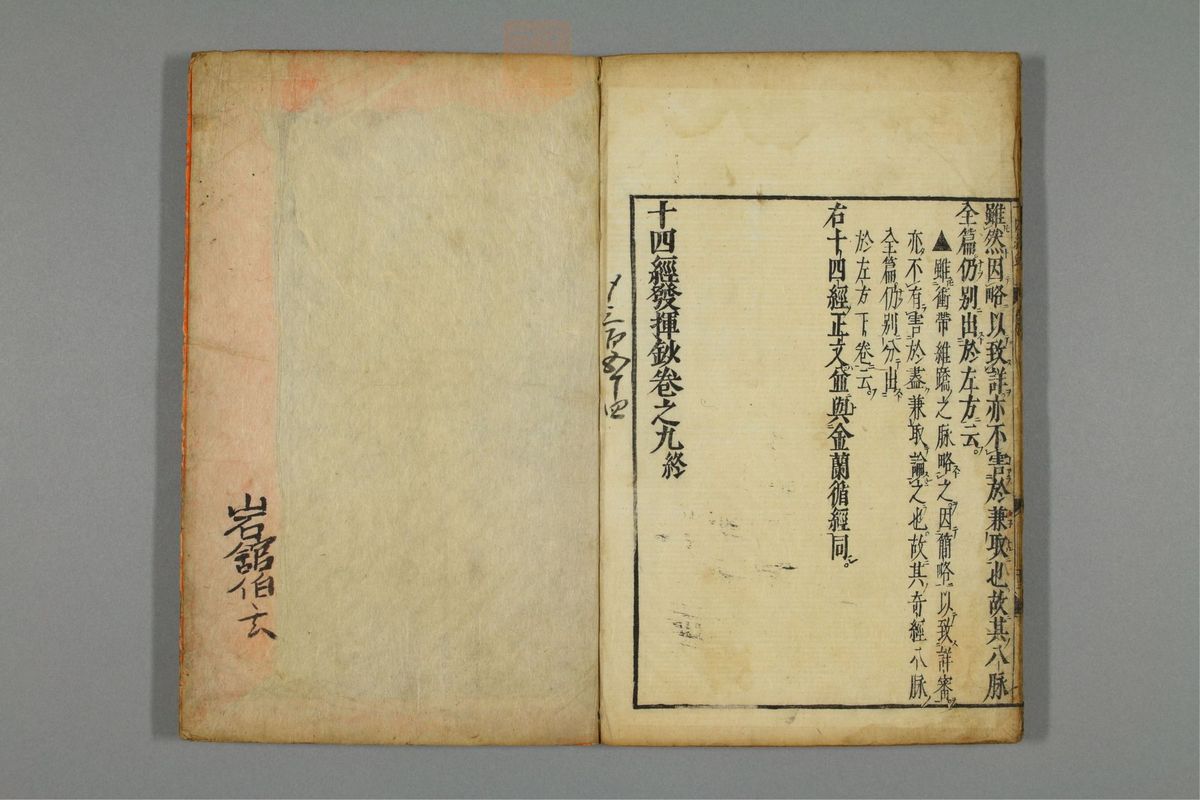 雖然因略以致詳亦不害於兼取也故其八脉
全篇仍別出於左方云
▲雖衝帶維蹻之脉略之因簡略以致詳審
亦不有害於蓋兼取論之也故其奇經八脉
全篇仍別分出
於左方下卷云
右十四經正文並與金蘭循經同
十四經發揮鈔卷之九終
岩舘伯玄